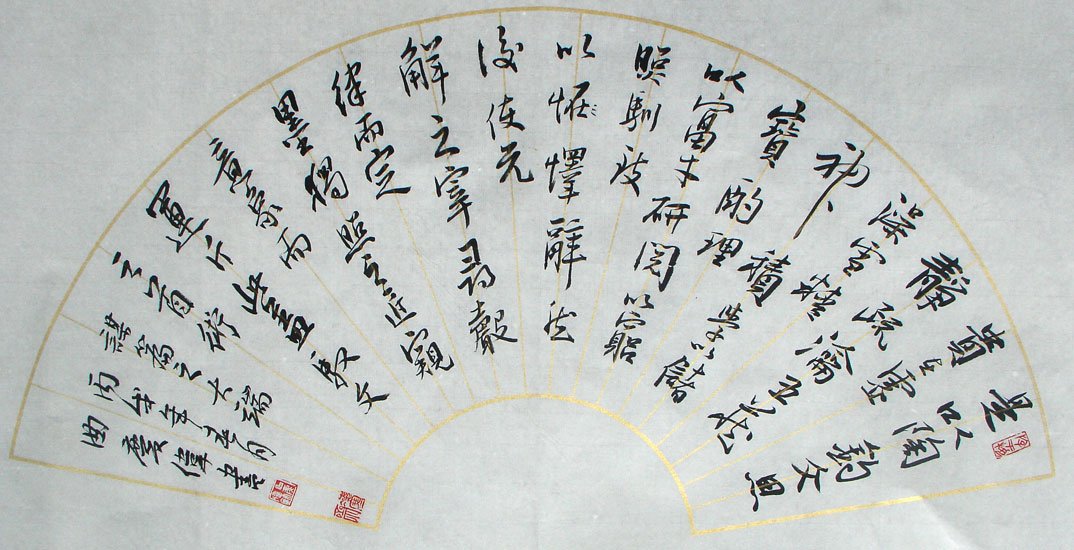 是以陶鈞文思
貴在虛
靜疏瀹五藏
澡雪精
神積學以儲
寶酌理
以富才研閱以窮
照馴致
以懌辭然
後使元
解之宰尋聲
律而定
墨獨照之匠窺
意象而
運斤此蓋馭文
之首術
謀篇之大端
丙戌年
曲慶偉書